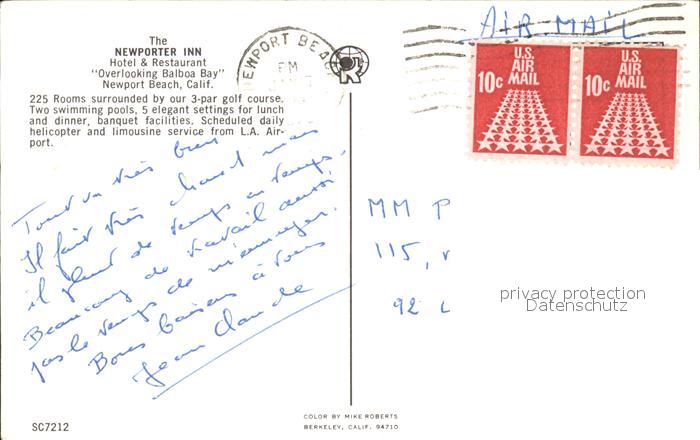 The
NEWPORTER INN
Hotel & Restaurant
"Overlooking Balboa Bay"
Newport Beach, Calif.
225 Rooms surrounded by our 3-par golf course.
Two swimming pools, 5 elegant settings for lunch
and dinner, banquet facilities. Scheduled daily
helicopter and limousine service from L.A. Air-
port.
NEWPORT BEACH
PM
AIR MAIL
U.S.
AIR
MAIL
10c
U.S.
AIR
MAIL
10c
Tout va très bien
Il fait très chaud mais
il pleut de temps en temps.
Beaucoup de travail aussi
pas le temps de m'ennuyer.
Bons baisers à tous
Jean Claude
MM P
115, r
92 L
privacy protection
Datenschutz
SC7212
COLOR BY MIKE ROBERTS
BERKELEY, CALIF. 94710